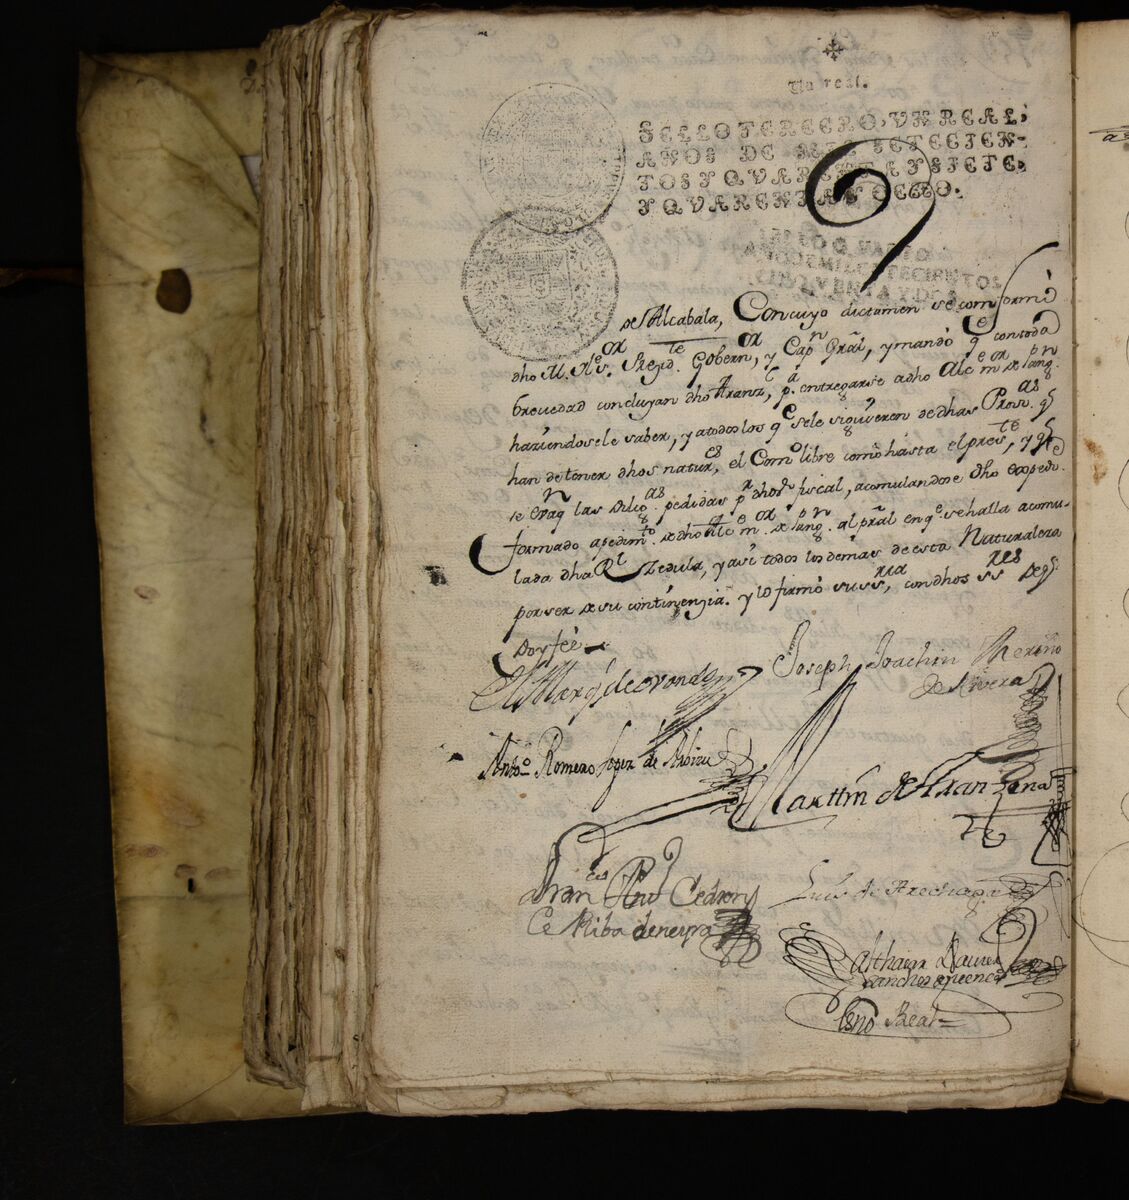 Un real.
SELLO TERCERO, VN REAL;
AÑOS DE MIL SETECIEN-
TOS Y QVARENTA Y SIETE,
Y QVARENTA Y OCHO.
SELLO QUARTO
AÑO DE MIL SETECIENTOS
CINQVENTA Y DOS
de Alcabala, Con cuyo dictamen se comformó
dho M. Ne. Sor. Preyd.te Govern.or, y Capn. Gral, y mandó qe con toda
brevedad concluyan dho Aranzl, pa. entregarse a dho Alce mor de Sangn.
haziendosele saber, y a todos los qe sele siguieren de dhas Provas. qe
han de tener dhos natures. el Como libre como hasta el preste, y qe
se evaqn las Diligas. pedidas pr dhor fiscal, acumulandose dho expedi-
formado a pedimto. de dho Alce mor de Sangn. al pral en qe. se halla acomu-
lada dha Rl Zedula, y assi todos los demas de esta Naturaleza
por ser de su continenzia. y lo firmó su ssria, con dhos ssres de qe
Doy feè
El Marqs de ovando
Joseph Joachin Merino
de Rivera
Anto. Romero Lopez de Arbizu
Marttin de
Francco
de Riba deneyra
Luis de Arechaga
Balthazar Xavier
Sanchez de Cuenca
Esno Real